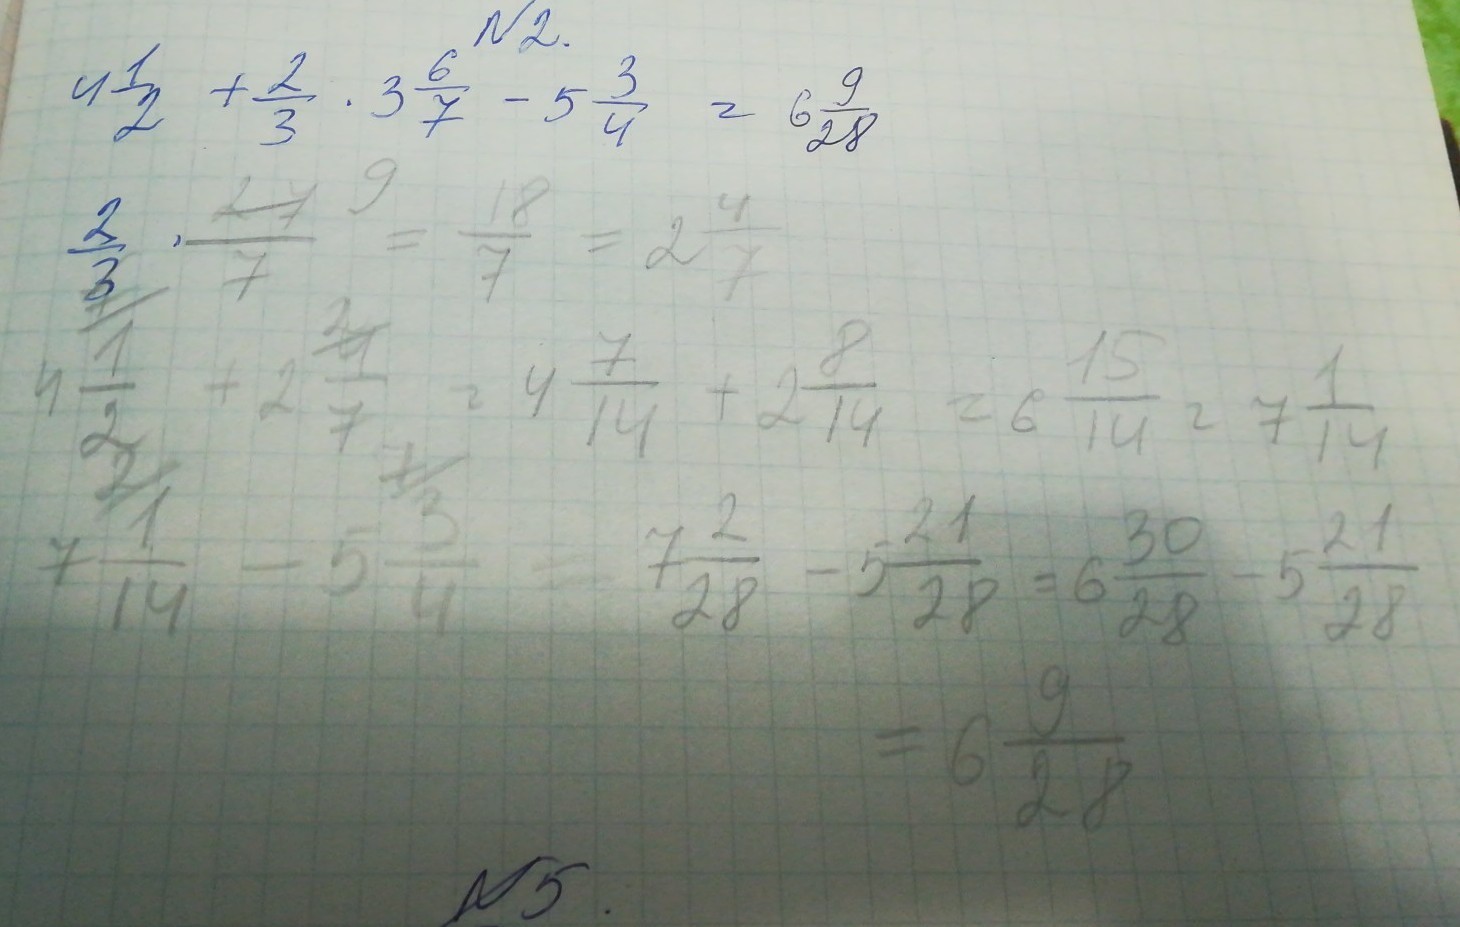 N2.
4 1/2 + 2/3 · 3 6/7 - 5 3/4 = 6 9/28
2/3 · 27/7 9 = 18/7 = 2 4/7
4 1/2 + 2 4/7 = 4 7/14 + 2 8/14 = 6 15/14 = 7 1/14
7 1/14 - 5 3/4 = 7 2/28 - 5 21/28 = 6 30/28 - 5 21/28
= 6 9/28
N5.